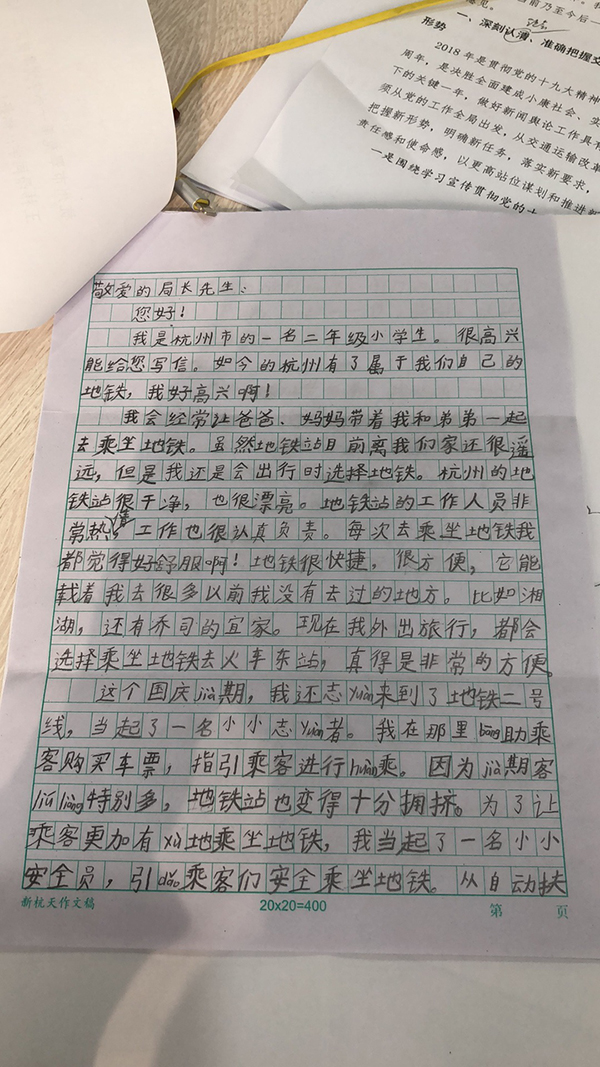 形势
一、深刻认清、准确把握
2018年是贯彻党的十九大精神
周年，是决胜全面建成小康社会、实
下的关键一年，做好新闻舆论工作具有
须从党的工作全局出发，从交通运输改革
把握新形势，明确新任务，落实新要求，
责任感和使命感，以更高站位谋划和推进新
一是围绕学习宣传贯彻党的十
敬爱的局长先生：
您好！
我是杭州市的一名二年级小学生。很高兴
能给您写信。如今的杭州有了属于我们自己的
地铁，我好高兴啊！
我会经常让爸爸、妈妈带着我和弟弟一起
去乘坐地铁。虽然地铁站目前离我们家还很遥
远，但是我还是会出行时选择地铁。杭州的地
铁站很干净，也很漂亮。地铁站的工作人员非
常热情，工作也很认真负责。每次去乘坐地铁我
都觉得好舒服啊！地铁很快捷，很方便，它能
载着我去很多以前我没有去过的地方。比如湘
湖，还有乔司的宜家。现在我外出旅行，都会
选择乘坐地铁去火车东站，真得是非常的方便。
这个国庆jià期，我还志yuàn来到了地铁二号
线，当起了一名小小志yuàn者。我在那里bāng助乘
客购买车票，指引乘客进行huàn乘。因为jià期客
liú liàng特别多，地铁站也变得十分拥挤。为了让
乘客更加有xù地乘坐地铁，我当起了一名小小
安全员，引dǎo乘客们安全乘坐地铁。从自动扶
新杭天作文稿
20x20=400
第 页